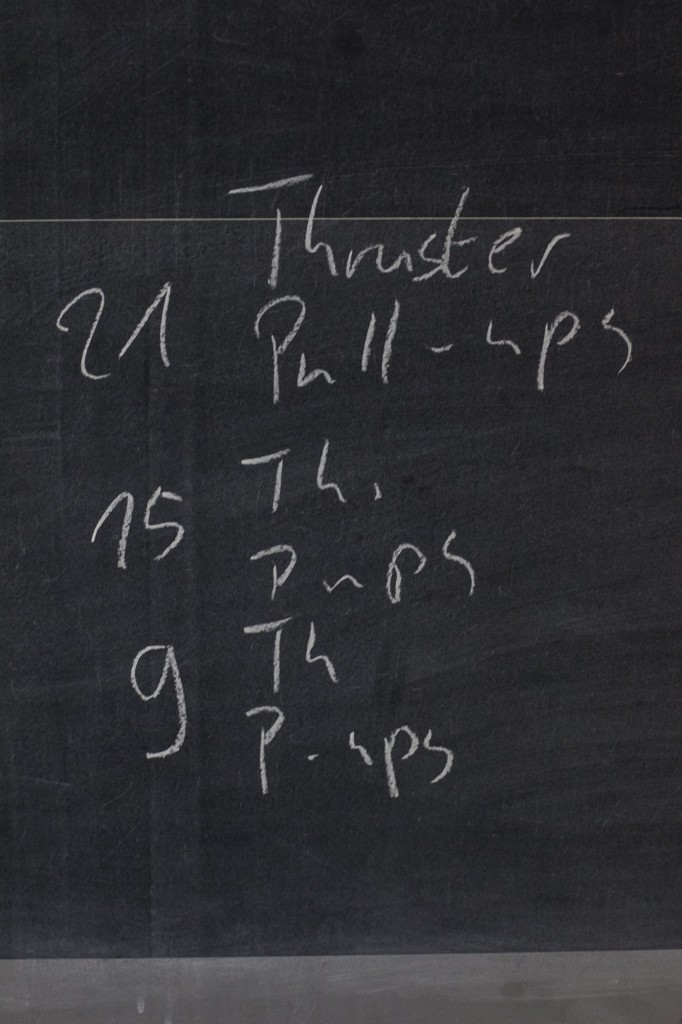 Thruster
21 Pull-ups
Th.
15 P-ups
Th
9 P-ups